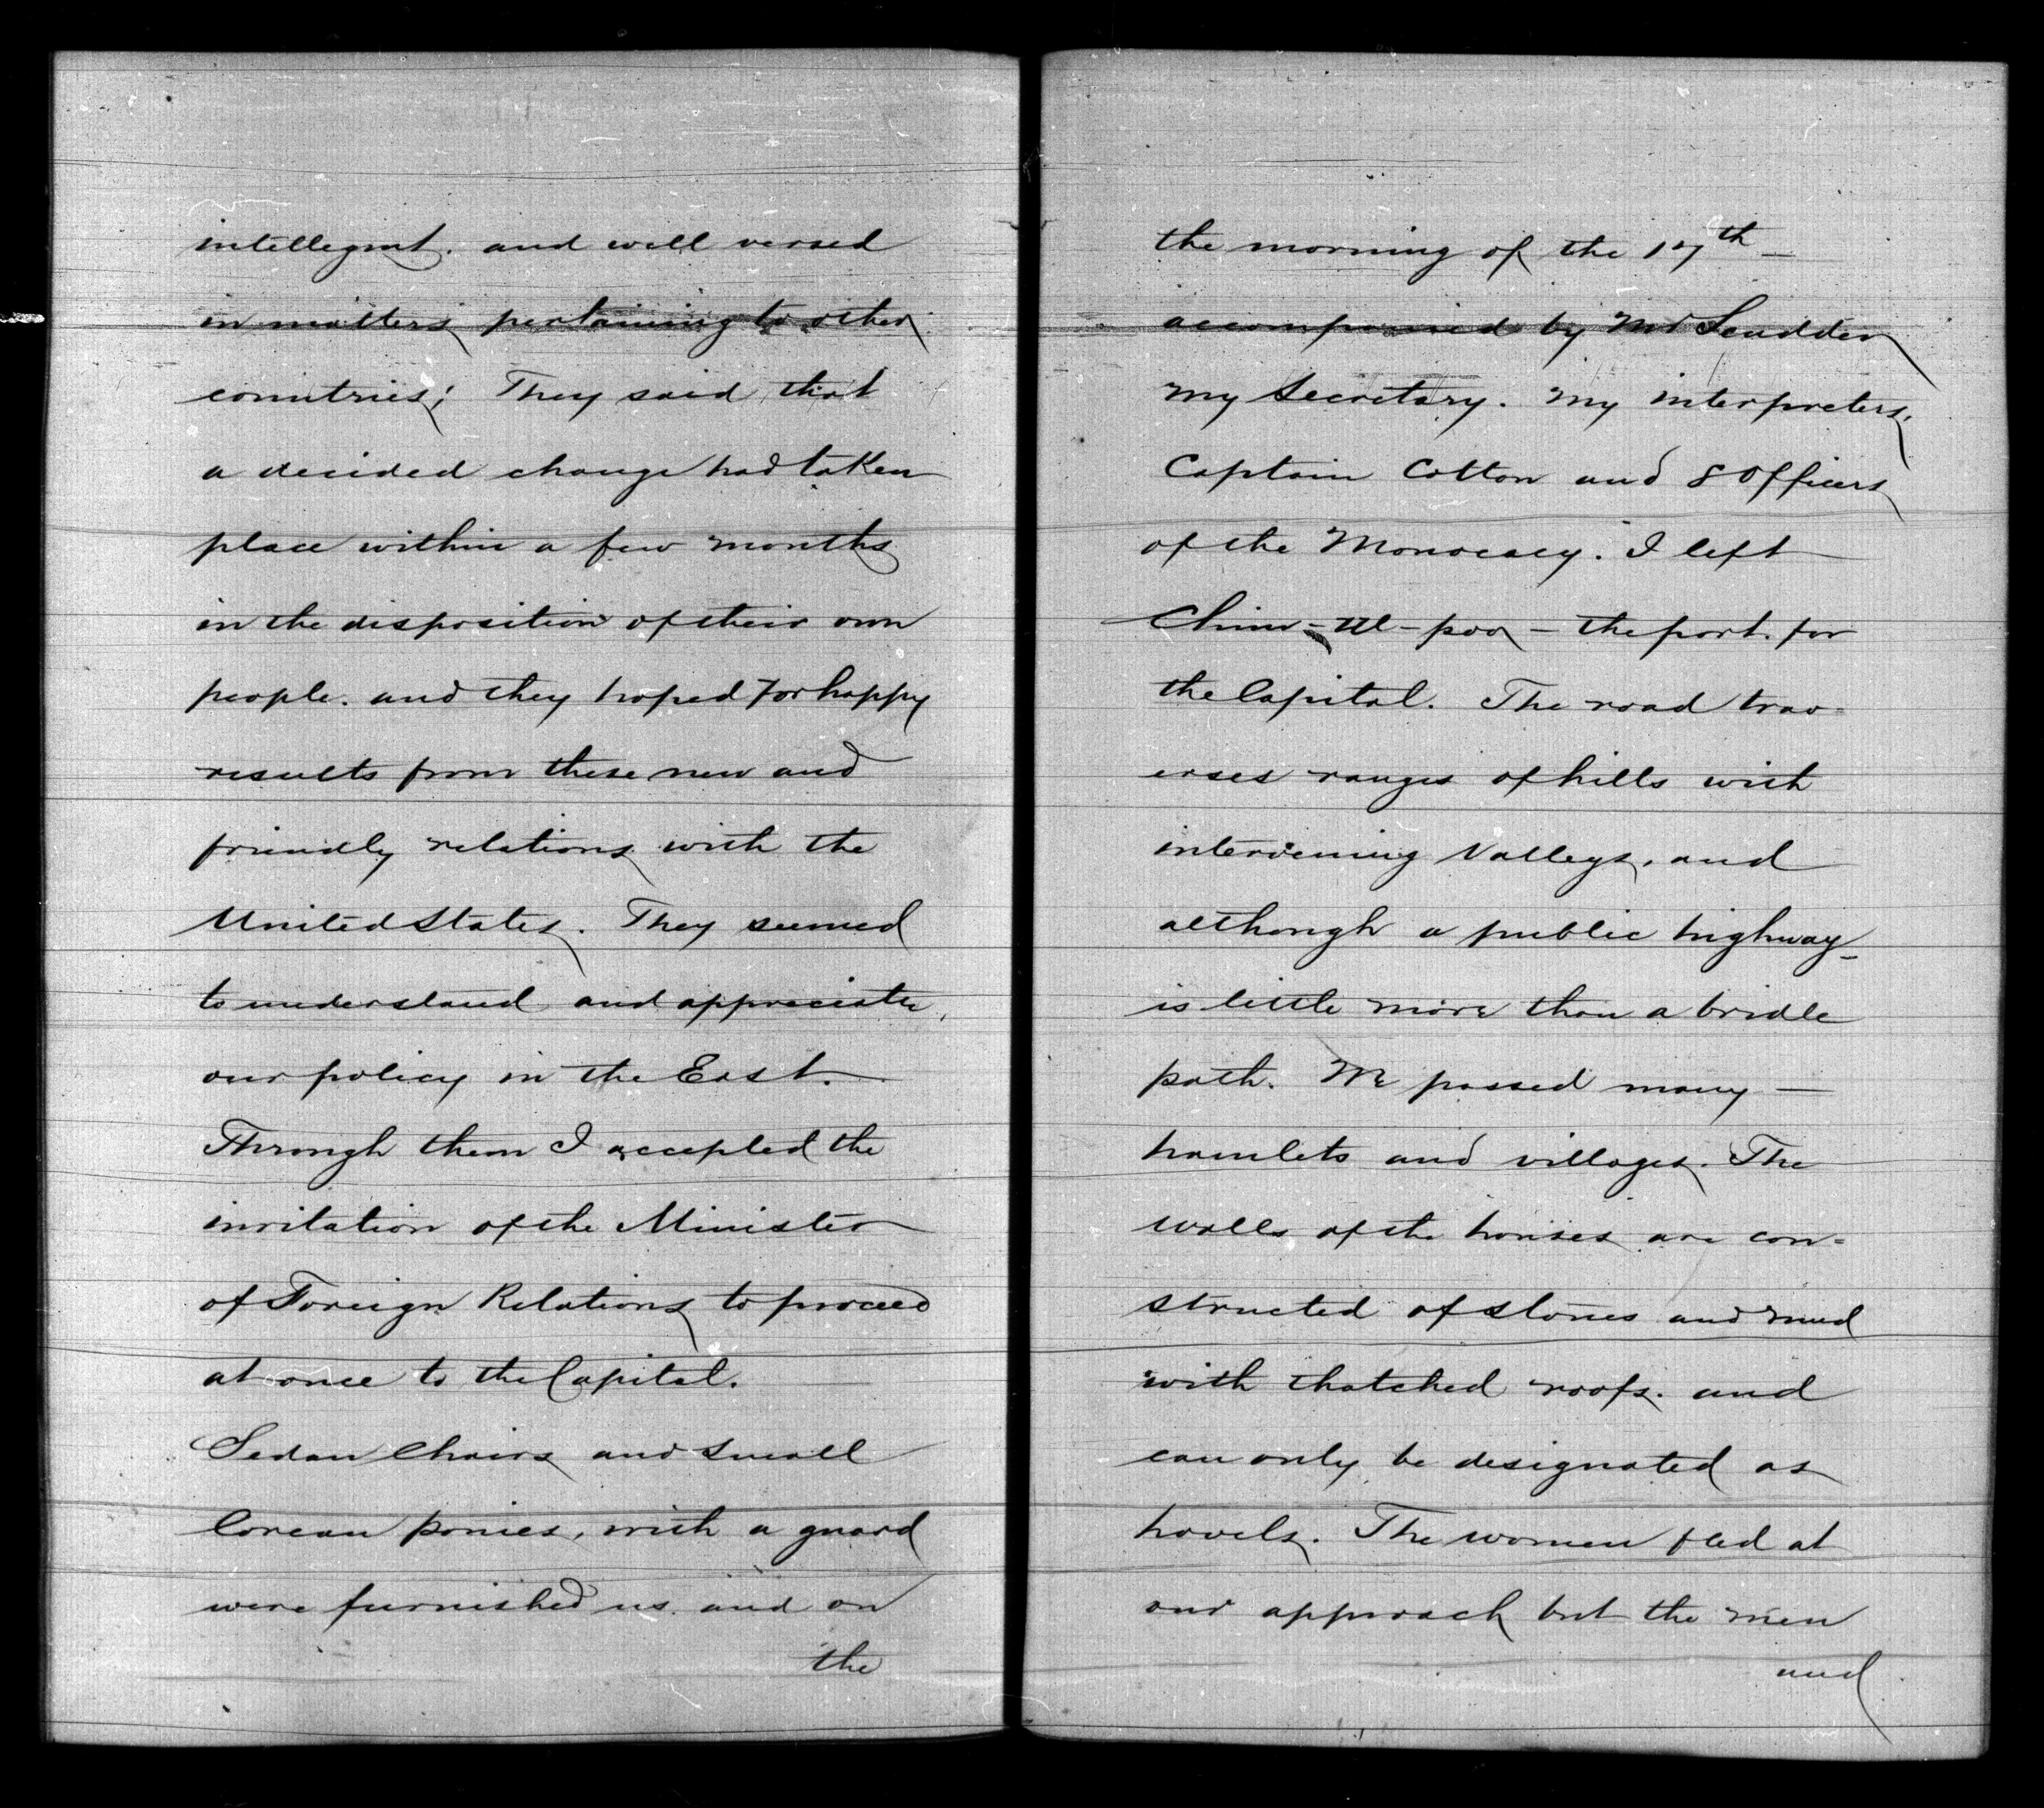 intellegent. and well versed
in matters pertaining to other
countries; They said that
a decided change had taken
place within a few months
in the disposition of their own
people. and they hoped for happy
results from these new and
friendly relations with the
United States. They seemed
to understand and appreciate
our policy in the East.
Through them I accepted the
invitation of the Minister
of Foreign Relations to proceed
at once to the Capital.
Sedan Chairs and small
Corean ponies, with a guard
were furnished us. and on
the
the morning of the 17th
accompanied by Mr Scudder
my Secretary. My interpreters,
Captain Cotton and 8 Officers
of the Monocacy. I left
Chim-ul-poo - the port. for
the Capital. The road trav-
erses ranges of hills with
intervening Valleys, and
although a public highway
is little more than a bridle
path. We passed many
hamlets and villages. The
walls of the houses are con-
structed of stones and mud
with thatched roofs. and
can only be designated as
hovels. The women fled at
our approach but the men
and